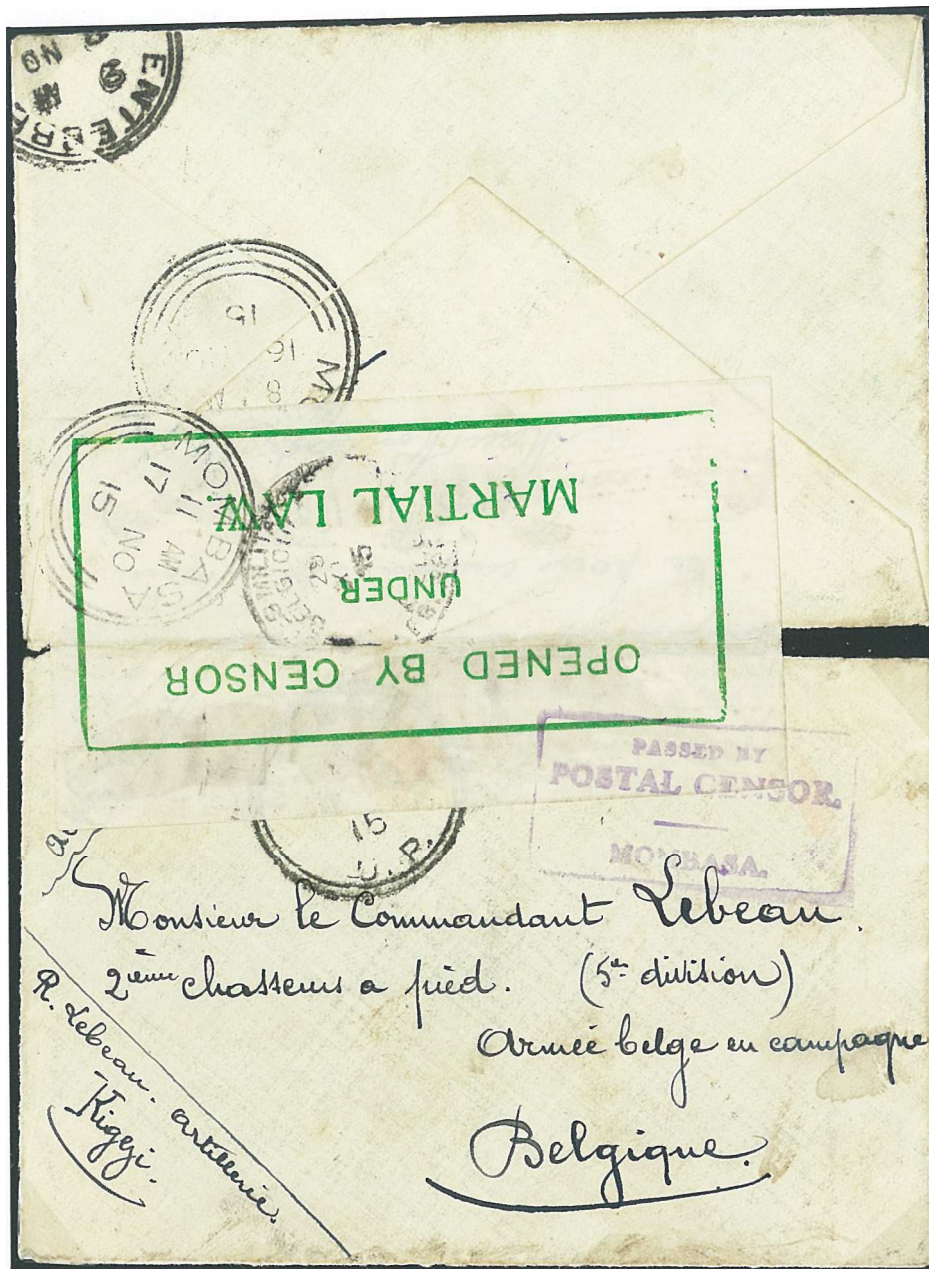 ENTEBBE
9
NO
MO
8
16
15
MOMBASA
11 AM
17 NO
15
BELGIQUE
29
XI
15
OPENED BY CENSOR
UNDER
MARTIAL LAW.
PASSED BY
POSTAL CENSOR.
MOMBASA.
15
Monsieur le Commandant Lebeau.
2ième chasseurs a pièd. (5e division)
Armée belge en campagne
Belgique.
R. Lebeau. artillerie.
Kigezi.